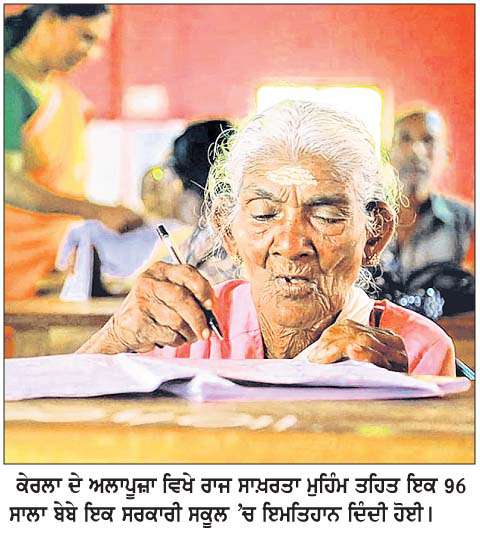 ਕੇਰਲਾ ਦੇ ਅਲਾਪੂਜ਼ਾ ਵਿਖੇ ਰਾਜ ਸਾਖ਼ਰਤਾ ਮੁਹਿੰਮ ਤਹਿਤ ਇਕ 96
ਸਾਲਾ ਬੇਬੇ ਇਕ ਸਰਕਾਰੀ ਸਕੂਲ 'ਚ ਇਮਤਿਹਾਨ ਦਿੰਦੀ ਹੋਈ।